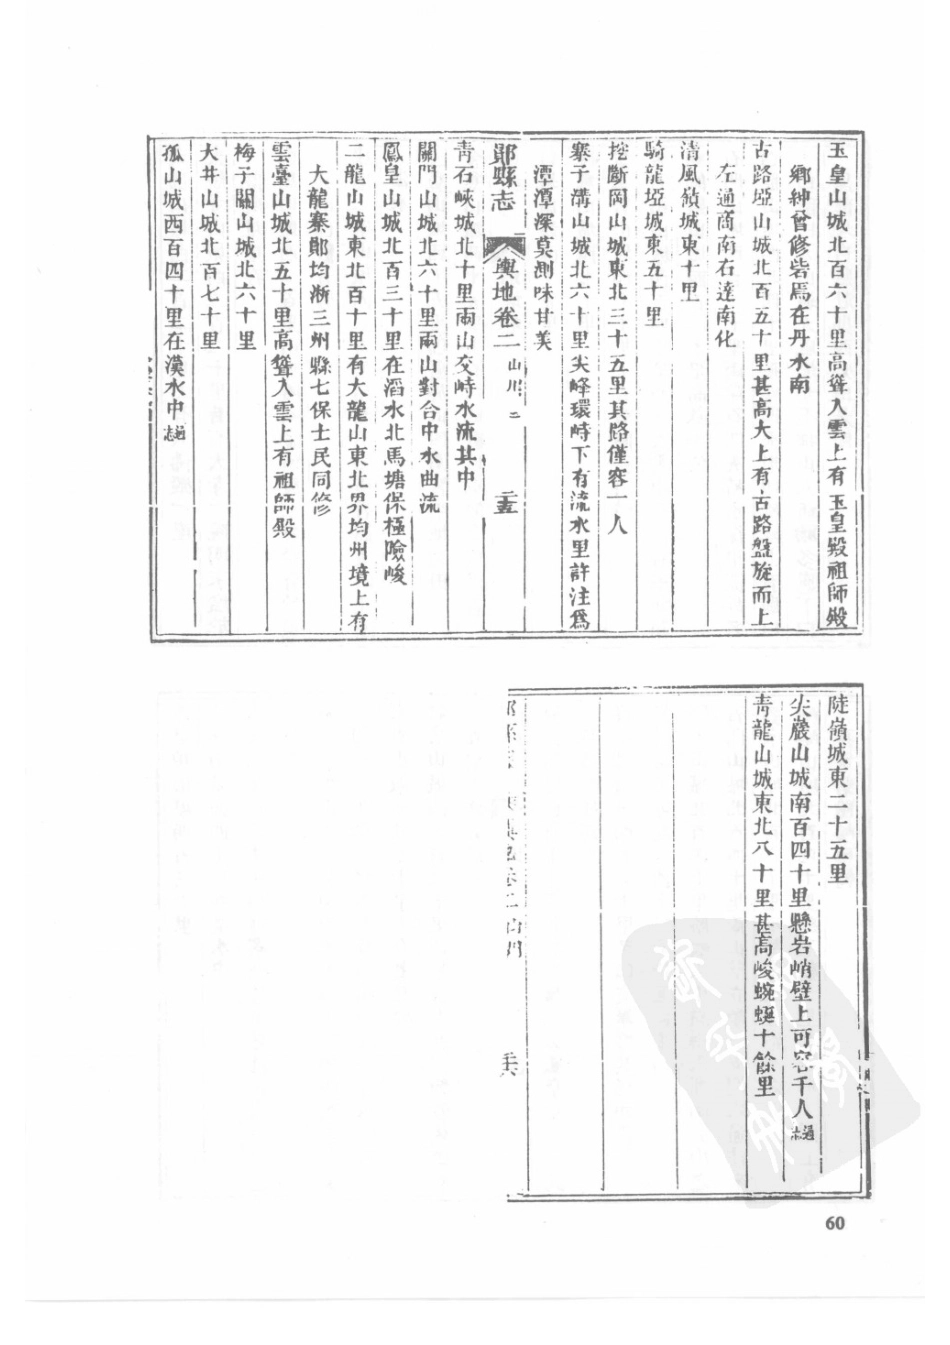 玉皇山城北百六十里高聳入雲上有玉皇殿祖師殿
鄉紳曾修砦焉在丹水南
古路埡山城北百五十里甚高大上有古路盤旋而上
左通商南右達南化
清風嶺城東十里
騎龍埡城東五十里
挖斷岡山城東北三十五里其路僅容一人
寨子溝山城北六十里尖峰環峙下有流水里許注爲
潭潭深莫測味甘美
鄖縣志 輿地卷二 山川 二 二十五
青石峽城北十里兩山交峙水流其中
關門山城北六十里兩山對合中水曲流
鳳皇山城北百三十里在滔水北馬塘保極險峻
二龍山城東北百十里有大龍山東北界均州境上有
大龍寨鄖均淅三州縣七保士民同修
雲臺山城北五十里高聳入雲上有祖師殿
梅子關山城北六十里
大井山城北百七十里
孤山城西百四十里在漢水中通志
陡嶺城東二十五里
尖巖山城南百四十里懸岩峭壁上可容千人通志
青龍山城東北八十里甚高峻蜿蜒十餘里
60